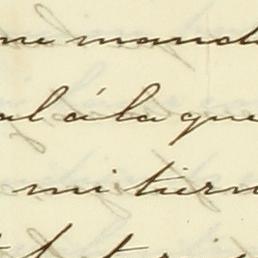 me mand
al á la que
mi tiern